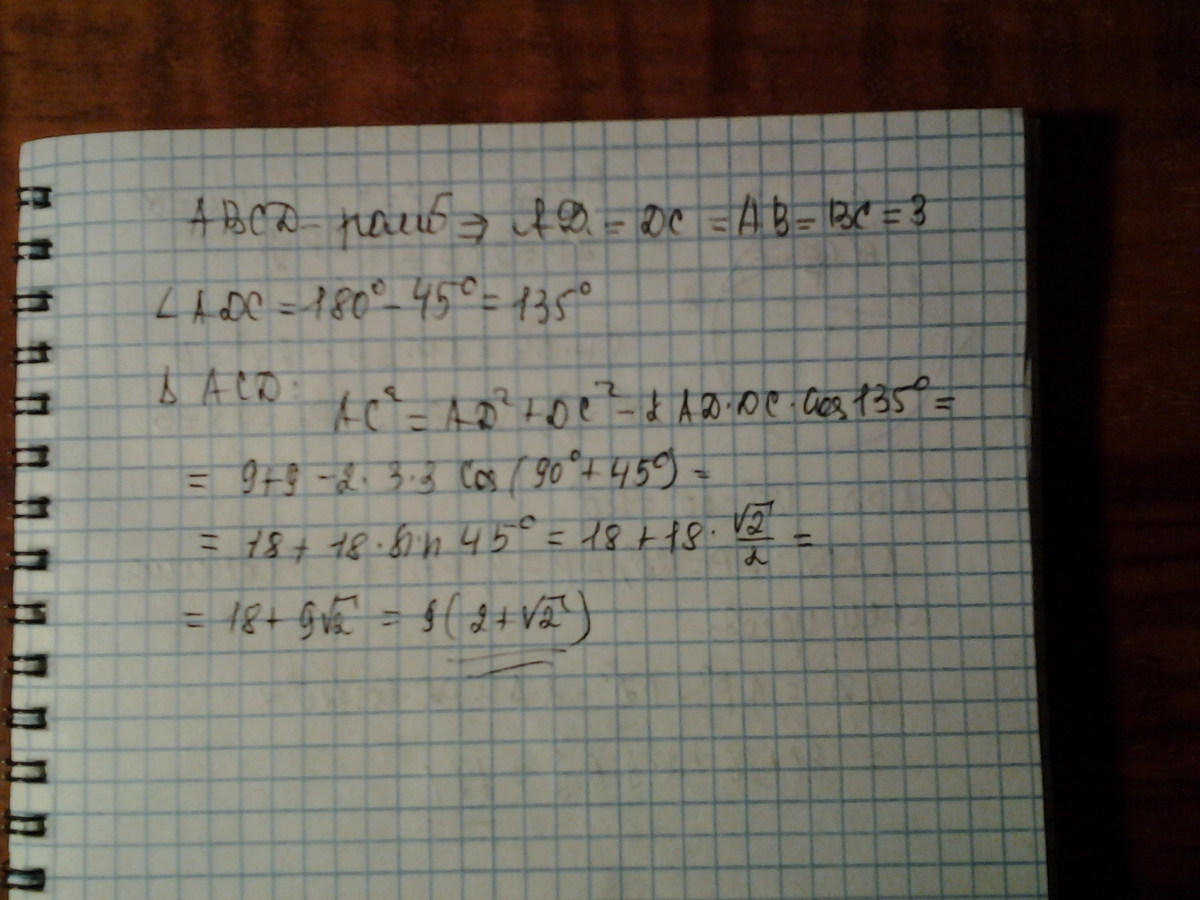 ABCD - ромб ⇒ AD = DC = AB = BC = 3
∠ADC = 180° - 45° = 135°
Δ ACD: AC² = AD² + DC² - 2 AD·DC·cos 135° =
= 9+9 - 2·3·3 cos(90° + 45°) =
= 18 + 18·sin 45° = 18 + 18·√2/2 =
= 18 + 9√2 = 9(2+√2)